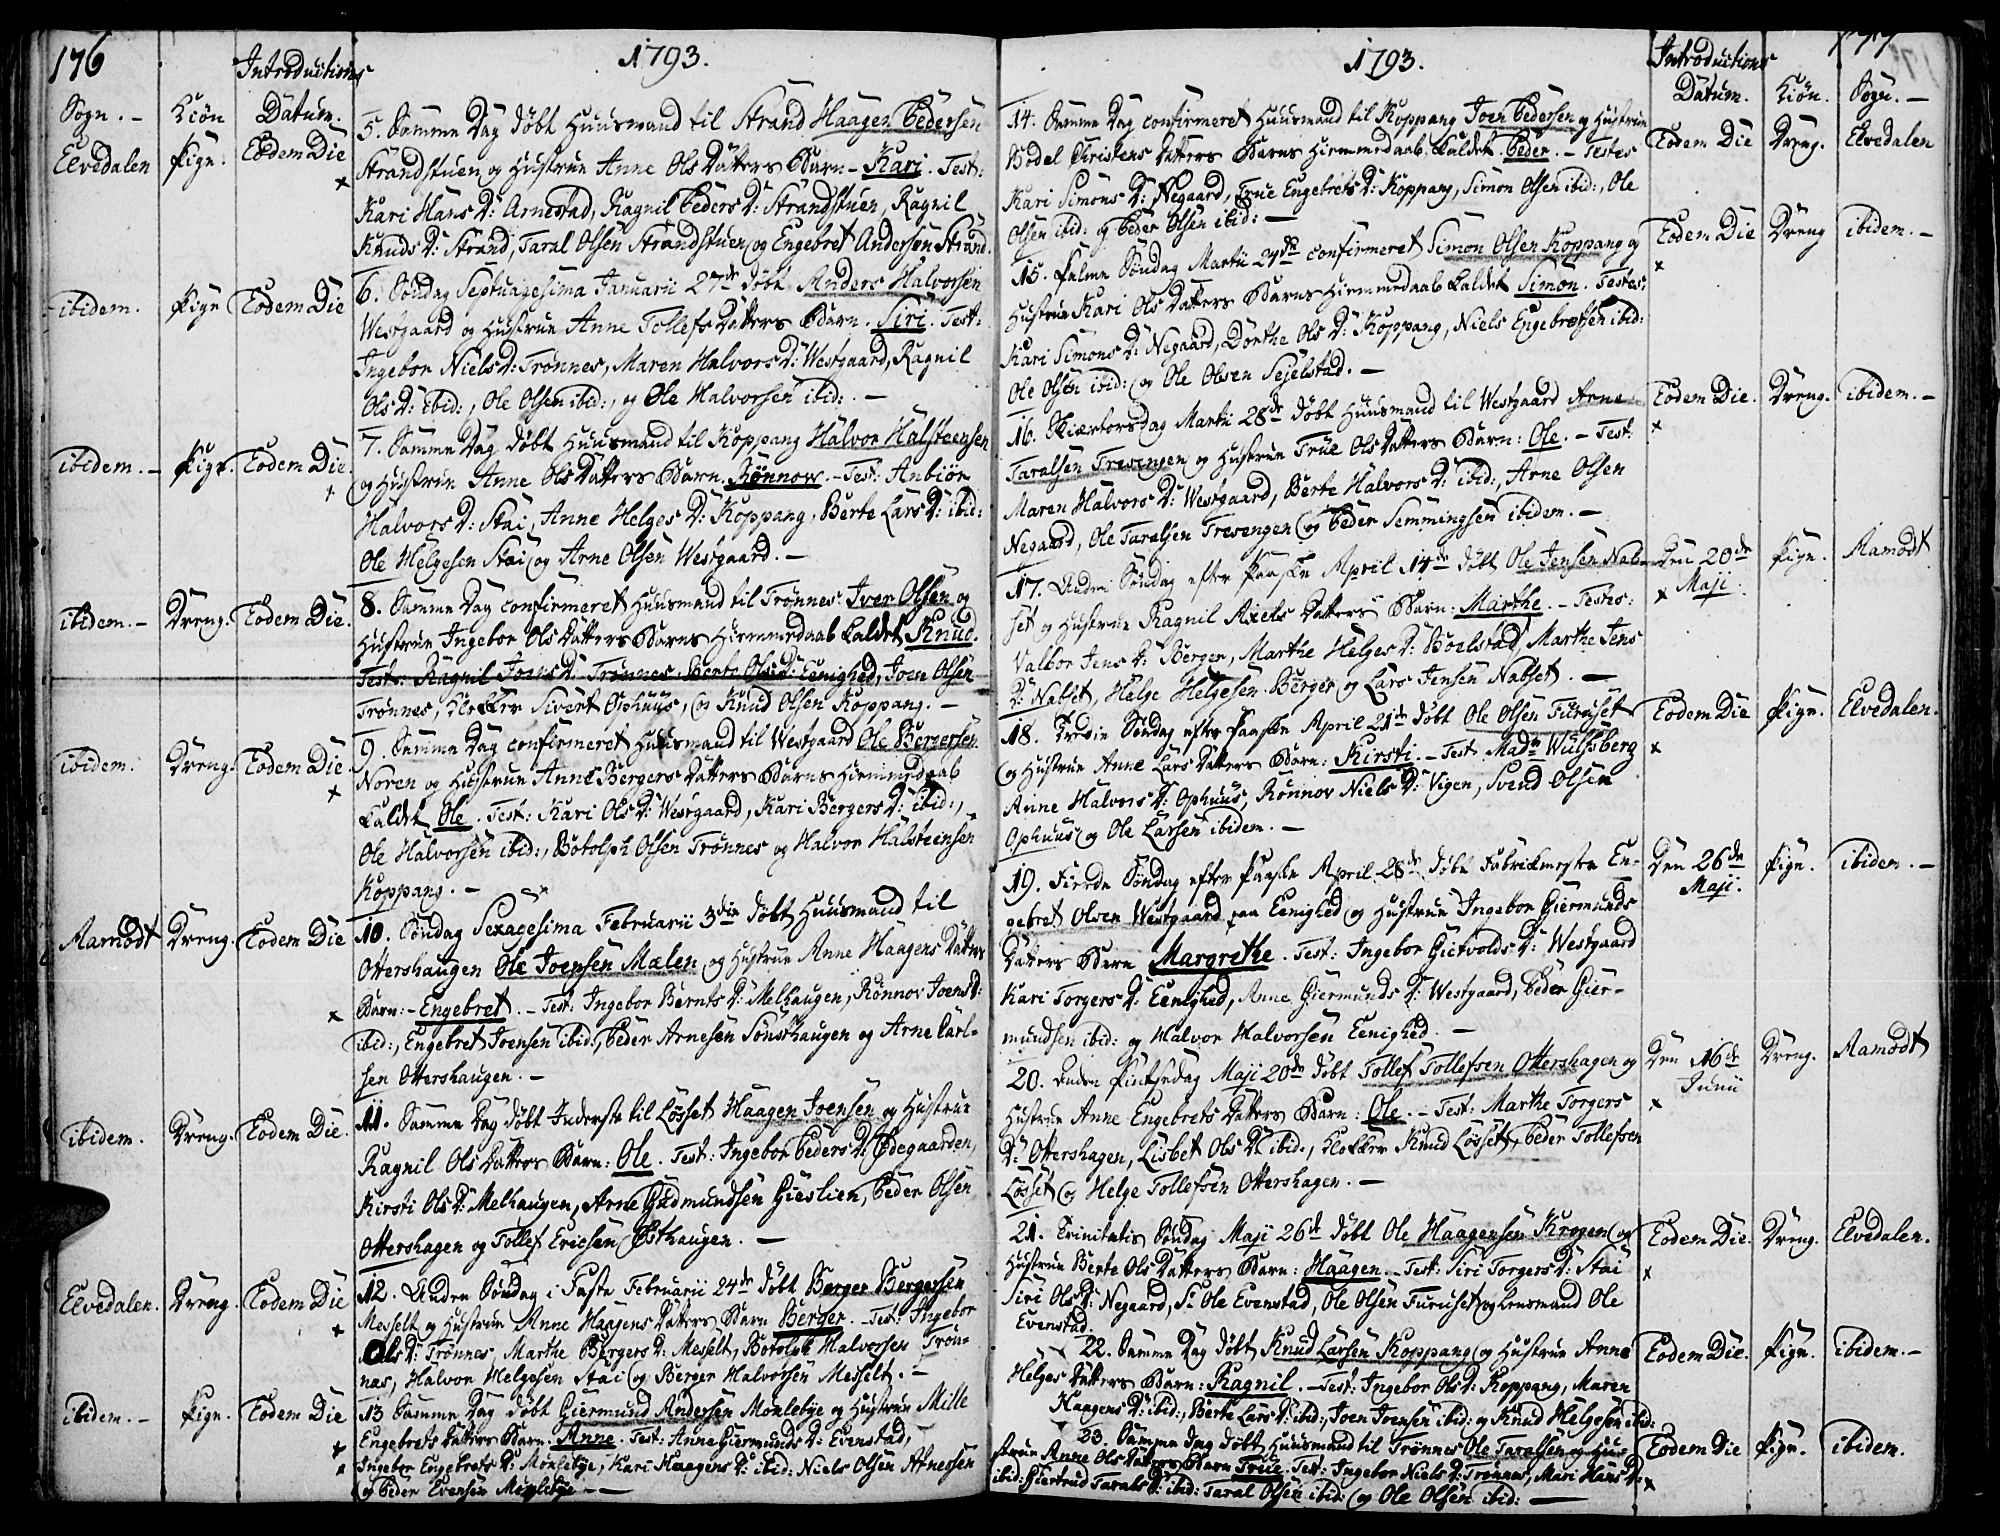 176
1793.
Introductions
Sogn. - Kiön Datum.
Elvedalen Pige. Eodem Die
5. Samme Dag döbt Huusmand til Strand Haagen Pedersen
Strandstuen og Hustrue Anne Ols Datters Barn - Kari. Test:
Kari Hans D: Arnestad, Ragnil Peders D: Strandstuen, Ragnil
Knuds D: Strand, Taral Olsen Strandstuen og Engebret Andersen Strand.
ibidem. Pige Eodem Die
6. Söndag Septuagesima Januarii 27de döbt Anders Halvorsen
Westgaard og Hustrue Anne Tollefs Datters Barn. Siri. Test:
Ingebor Niels D: Trönnes, Maren Halvors D: Westgaard, Ragnil
Ols D: ibid:, Ole Olsen ibid:, og Ole Halvorsen ibid: -
ibidem. - Pige. Eodem Die.
7. Samme Dag döbt Huusmand til Koppang Halvor Halsteensen
og Hustrue Anne Ols Datters Barn. Rönnow. - Test: Anbiör
Halvors D: Stai, Anne Helges D: Koppang, Berte Lars D: ibid:
Ole Helgesen Stai og Arne Olsen Westgaard. -
ibidem. - Dreng. Eodem Die.
8. Samme Dag confirmeret Huusmand til Trönnes Iver Olsen og
Hustrue Ingebor Ols Datters Barns Hiemmedaab kaldet Knud.
Test: Ragnil Joens D: Trönnes, Berte Ols D: Eenighed, Joen Olsen
Trönnes, Klokker Sivert Ophuus, og Knud Olsen Koppang. -
ibidem. Dreng. Eodem Die.
9. Samme Dag confirmeret Huusmand til Westgaard Ole Bergersen
Noren og Hustrue Anne Bergers Datters Barns Hiemmedaab
kaldet Ole. Test: Kari Ols D: Westgaard, Kari Bergers D: ibid:,
Ole Halvorsen ibid:, Botolph Olsen Trönnes og Halvor Halsteensen
Koppang. -
Aamodt Dreng. Eodem Die
10. Söndag Sexagesima Februarii 3die döbt Huusmand til
Ottershaugen Ole Joensen Mælen og Hustrue Anne Haagens Datters
Barn: - Engebret. - Test: Ingebor Bernts D: Melhaugen, Rönnov Joens D:
ibid:, Engebret Joensen ibid:, Peder Arnesen Sönsthaugen og Arne Carl-
sen Ottershaugen. -
ibidem. Dreng. Eodem Die.
11. Samme Dag döbt Inderste til Lösset Haagen Joensen og Hustrue
Ragnil Ols Datters Barn: Ole. Test: Ingebor Peders D: Ödegaarden,
Kirsti Ols D: Melhaugen, Arne Gudmundsen Gieslien, Peder Olsen
Ottershagen og Tollef Ericsen Östhaugen. -
Elvedalen. Dreng. Eodem Die
12. Anden Söndag i Faste Februarii 24de döbt Berger Bergersen
Messelt og Hustrue Anne Haagens Datters Barn Berger. - Test: Ingebor
Ols D: Trönnes, Marthe Bergers D: Messelt, Botolph Halvorsen Trön-
nes, Halvor Helgesen Stai og Berger Halvorsen Messelt. -
ibidem. - Pige. Eodem Die
13 Samme Dag döbt Giermund Andersen Monlebye og Hustrue Mille
Engebrets Datters Barn. Anne. Test: Anne Giermunds D: Evenstad,
Ingebor Engebrets D: Monlebye, Kari Haagens D: ibid: Niels Olsen Atnessen
og Peder Evensen Monlebye - -
177
1793.
Introductions
Datum. Kiön. Sogn. -
14. Samme Dag confirmeret Huusmand til Koppang Joen Pedersen og Hustrue
Bodel Christens Datters Barns Hiemmedaab kaldet Peder. - Testes
Kari Simons D: Negaard, True Engebrets D: Koppang, Simon Olsen ibid:, Ole
Olsen ibid: og Peder Olsen ibid: -
Eodem Die Dreng. Elvedalen
15. Palme Söndag Martii 24de confirmeret Simon Olsen Koppang og
Hustrue Kari Ols Datters Barns Hiemmedaab kaldet Simon. Testes:
Kari Simons D: Negaard, Dorthe Ols D: Koppang, Niels Engebretsen ibid:
Ole Olsen ibid: og Ole Olsen Sejelstad. -
Eodem Die Dreng ibidem. -
16. Skiærtorsdag Martii 28de döbt Huusmand til Westgaard Arne
Taralsen Tresengen og Hustrue True Ols Datters Barn: Ole. - Test:
Maren Halvors D: Westgaard, Berte Halvors D: ibid:, Arne Olsen
Negaard, Ole Taralsen Tresengen og Peder Semmingsen ibidem. -
Eodem Die. Dreng. ibidem. -
17. Anden Söndag efter Paaske April 14de döbt Ole Jensen Nab-
set og Hustrue Ragnil Axels Datters Barn: Marthe. - Testes:
Valbor Jens D: Berger, Marthe Helges D: Borlstad, Marthe Jens
D: Nabset, Helge Helgesen Berger og Lars Jensen Nabset. -
Den 20de Maji. Pige. Aamodt
18. Tredie Söndag efter Paaske April 21de döbt Ole Olsen Furuset
og Hustrue Anne Lars Datters Barn: Kirsti. - Test. Madm Wulfsberg
Anne Halvors D: Ophuus, Rönnov Niels D: Vigen, Svend Olsen
Ophuus og Ole Larsen ibidem. -
Eodem Die Pige. Elvedalen.
19. Fierde Söndag efter Paaske April 28de döbt Fabrickmester En-
gebret Olsen Westgaard paa Eenighed og Hustrue Ingebor Giermunds
Datters Barn Margrethe. Test: Ingebor Gietvolds D: Westgaard
Kari Torgers D: Eenighed, Anne Giermunds D: Westgaard, Peder Gier-
mundsen ibid: og Halvor Halvorsen Eenighed. -
Den 26de Maji. Pige. ibidem. -
20. Anden Pintsedag Maji 20de döbt Tollef Tollefsen Ottershagen og
Hustrue Anne Engebrets Datters Barn: Ole. - Test: Marthe Torgers
D: Ottershagen, Lisbet Ols D: ibid:, Klokker Knud Lösset, Peder Tollefsen
Lösset og Helge Tollefsen Ottershagen. -
Den 16de Junii Dreng. Aamodt
21. Trinitatis Söndag Maji 26de döbt Ole Haagensen Krogen og
Hustrue Berte Ols Datters Barn: Haagen. - Test: Siri Torgers D: Stai
Siri Ols D: Negaard, Sr Ole Evenstad, Ole Olsen Furuset og Lensmand Ole
Evenstad.
Eodem Die. Dreng. Elvedalen.
22. Samme Dag döbt Knud Larsen Koppang og Hustrue Anne
Helges Datters Barn: Ragnil. - Test: Ingebor Ols D: Koppang, Maren
Haagens D: ibid:, Berte Lars D: ibid:, Joen Joensen ibid: og Knud Helgesen ibid:
Eodem Die. Pige. ibidem. -
23. Samme dag döbt Huusmand til Trönnes Ole Taralsen og Hu-
strue Anne Ols Datters Barn True. Test: Ingebor Niels D: Trönnes, Mari Hans D:
ibid: Giertrud Tarals D: ibid: Taral Olsen ibid: og Ole Olsen ibid: -
Eodem Die Pige. ibidem.